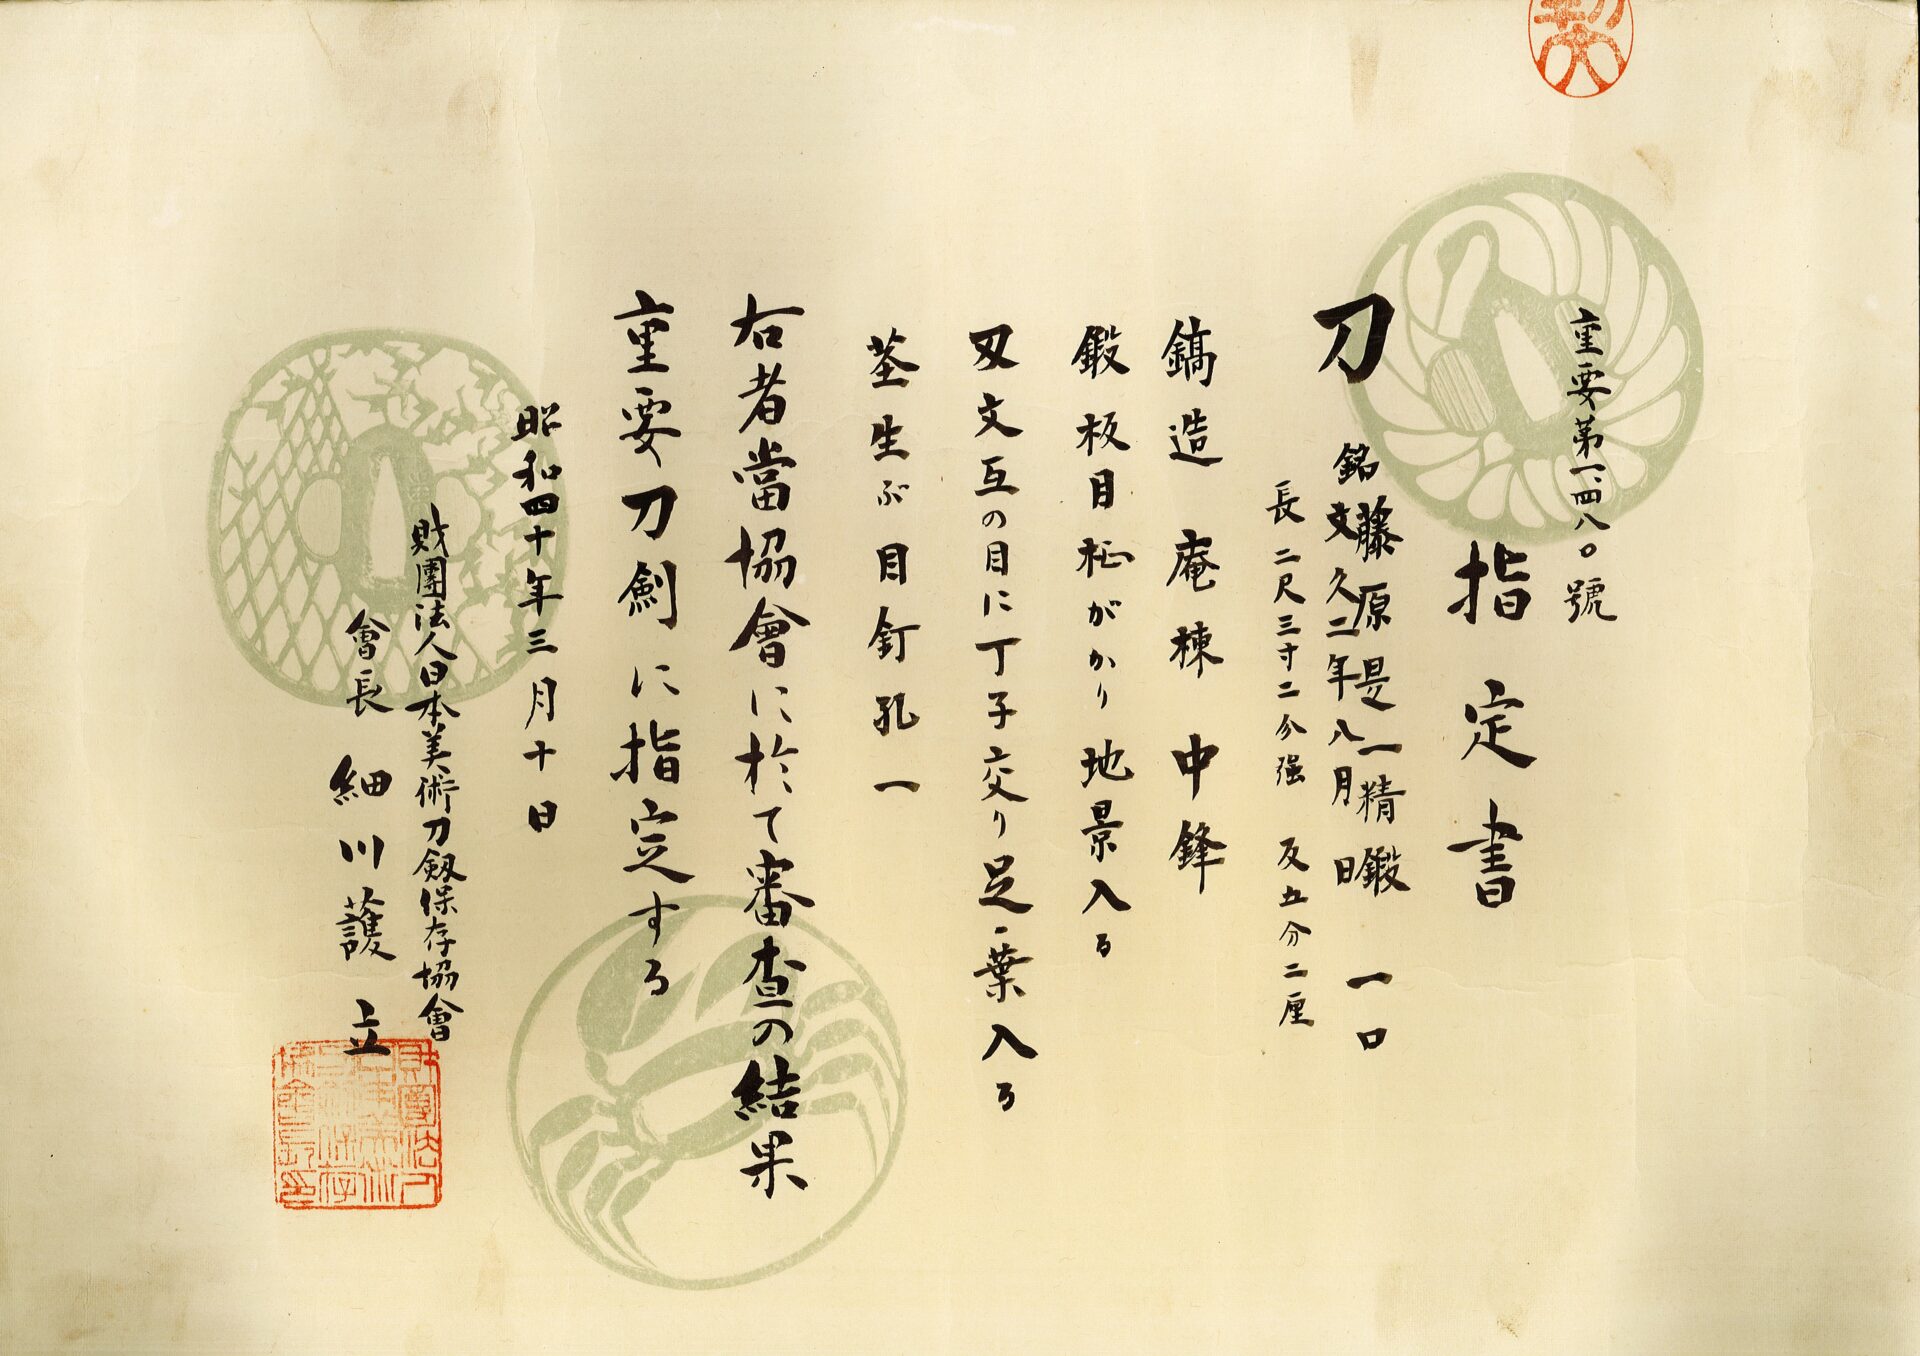 重要第一、四八〇號
指定書
刀 銘 藤原是一精鍛 一口
文久二年八月日
長二尺三寸二分强 反五分二厘
鎬造 庵棟 中鋒
鍛板目柾がかり地景入る
刃文互の目に丁子交り足・葉入る
茎生ぶ目釘孔一
右者當協會に於て審査の結果
重要刀劍に指定する
昭和四十年三月十日
財團法人日本美術刀剱保存協會
會長 細川護立